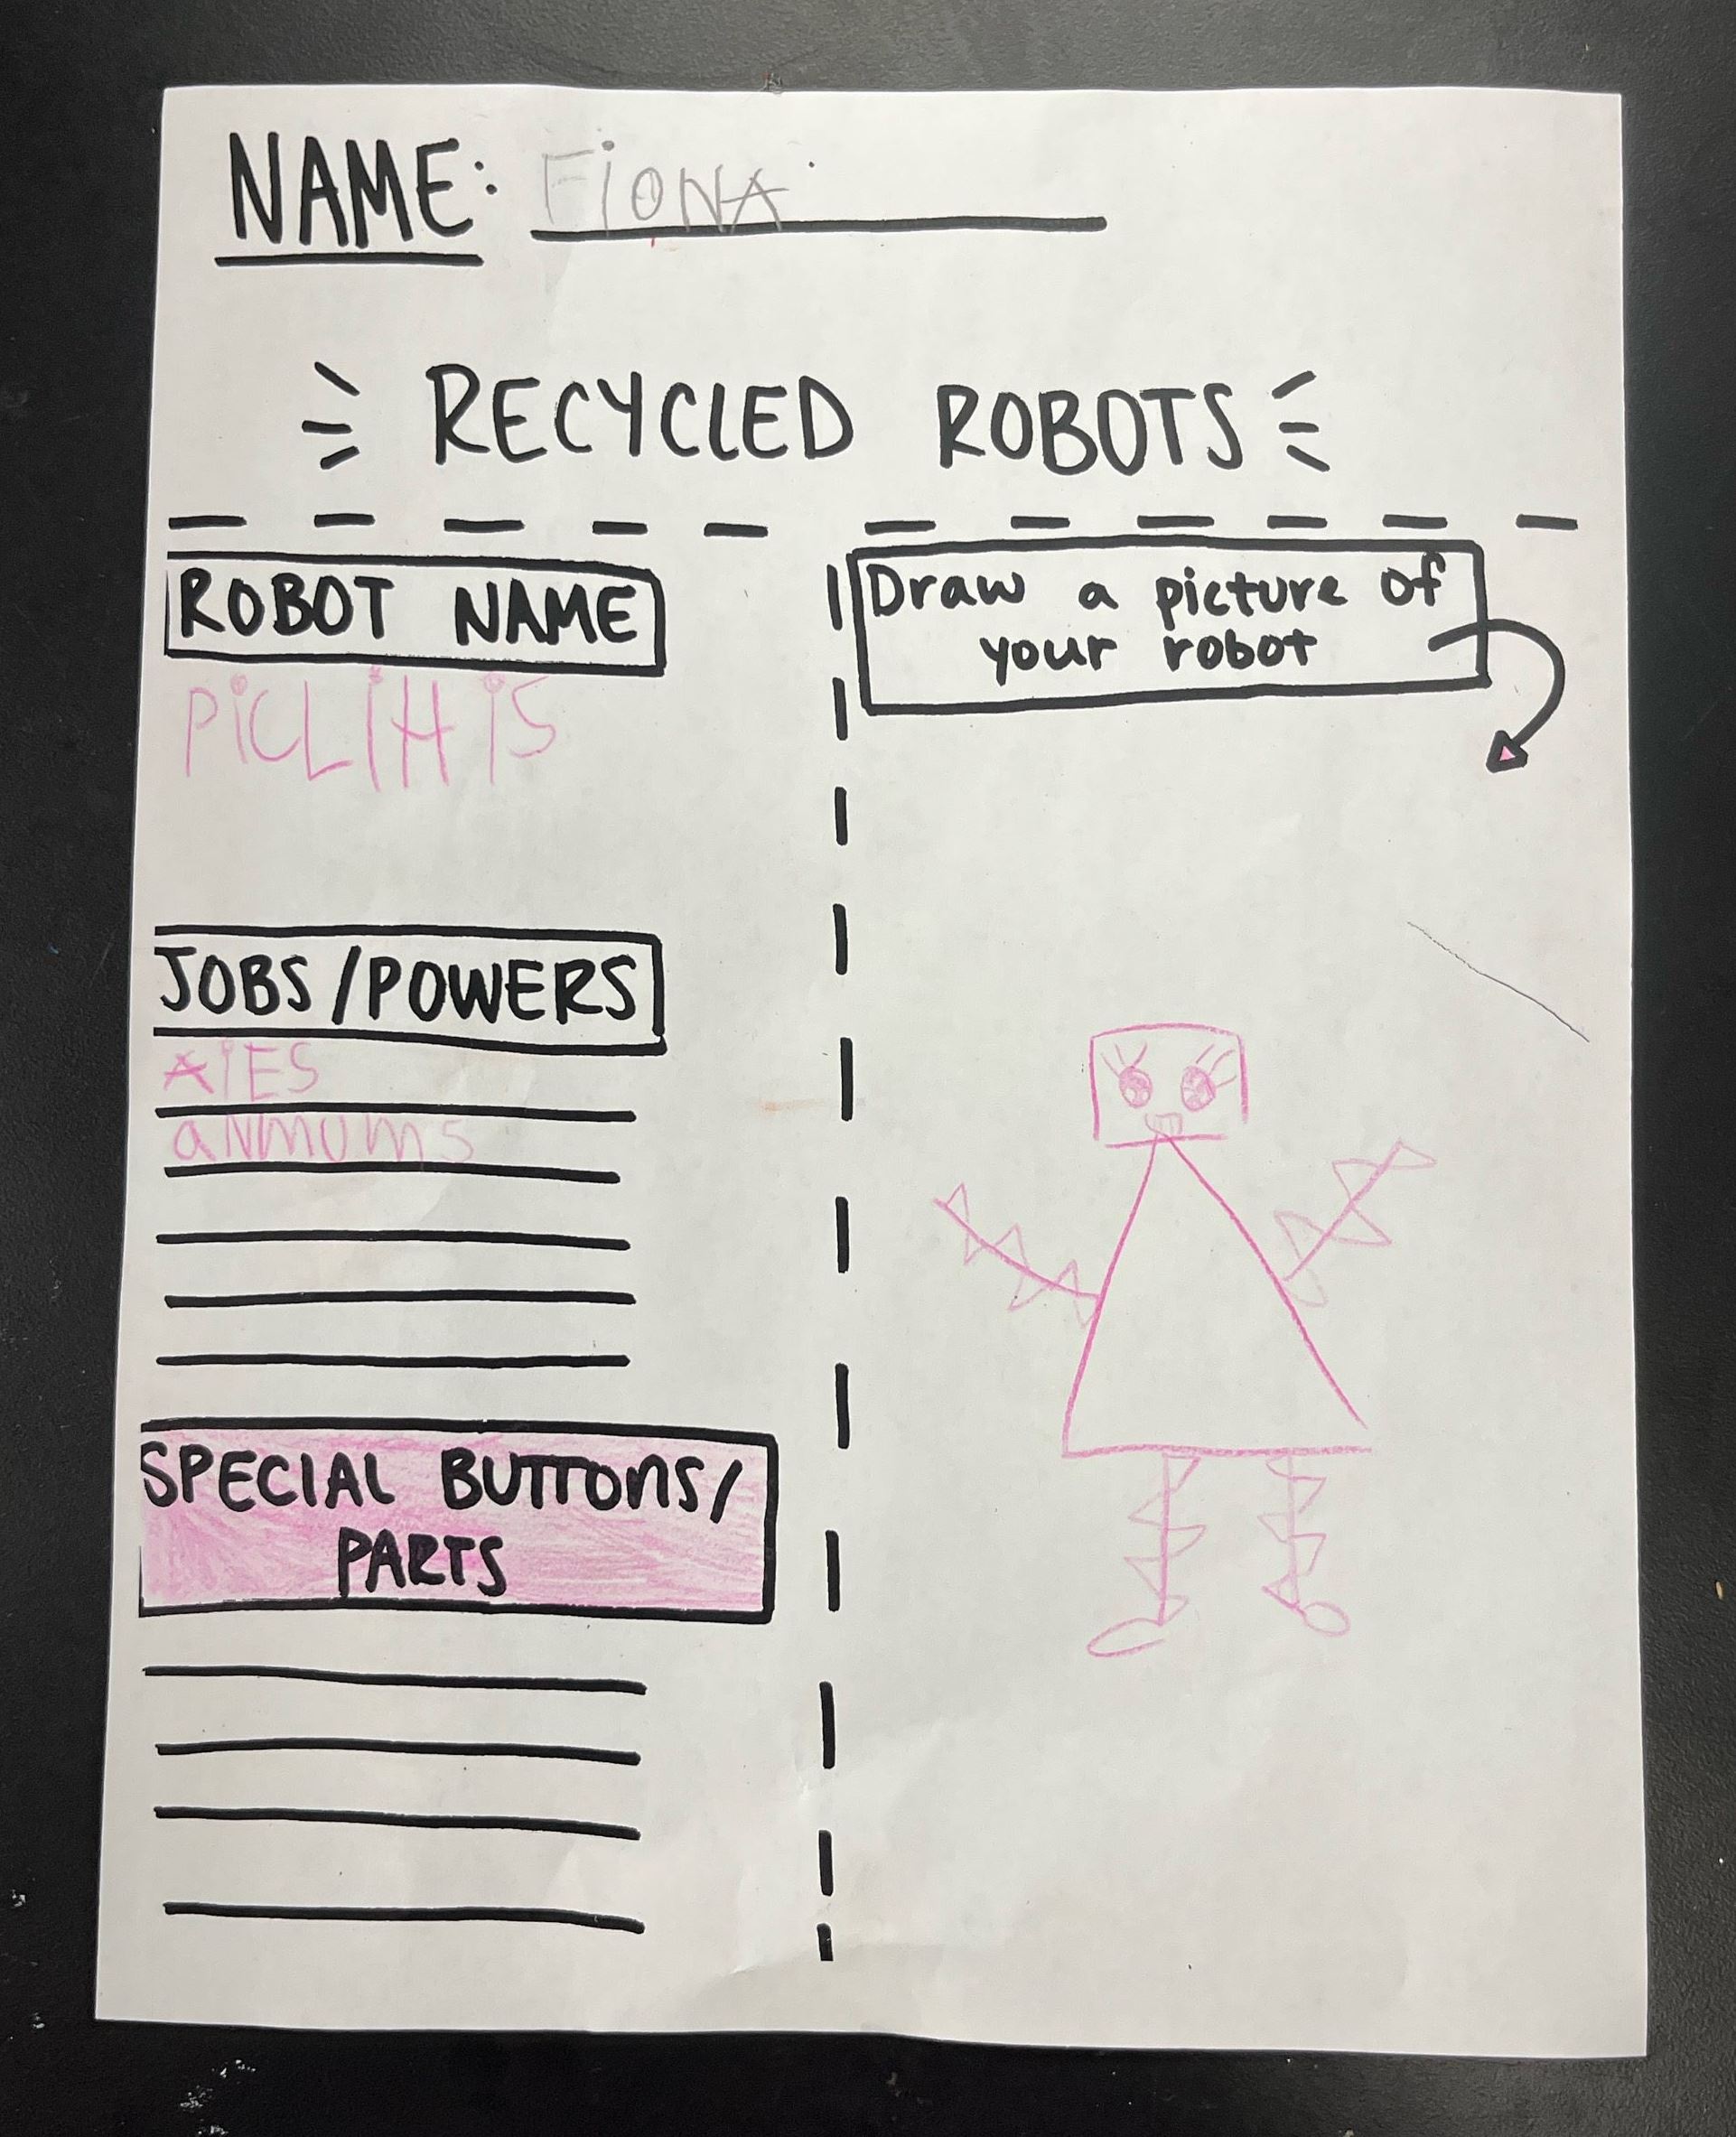 NAME: FiONA
RECYCLED ROBOTS
ROBOT NAME
PiCLiHiS
JOBS/POWERS
AiES
aNmUmS
SPECIAL BUTTONS/
PARTS
Draw a picture of
your robot